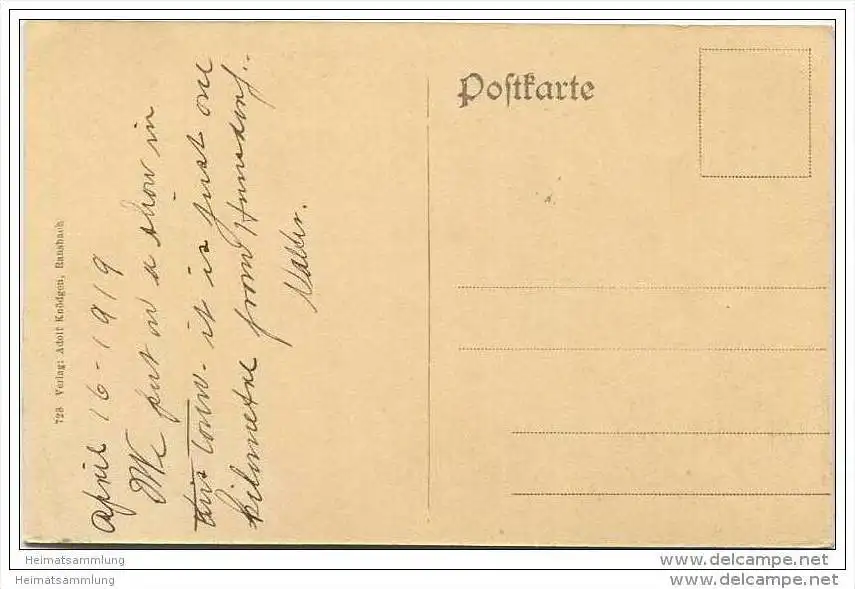 Postkarte
728 Verlag: Adolf Knödgen, Ransbach
April 16-1919
We put on a show in
this town. it is just one
kilometer from Hunsdorf.
Heimatsammlung
Heimatsammlung
www.delcampe.net
www.delcampe.net